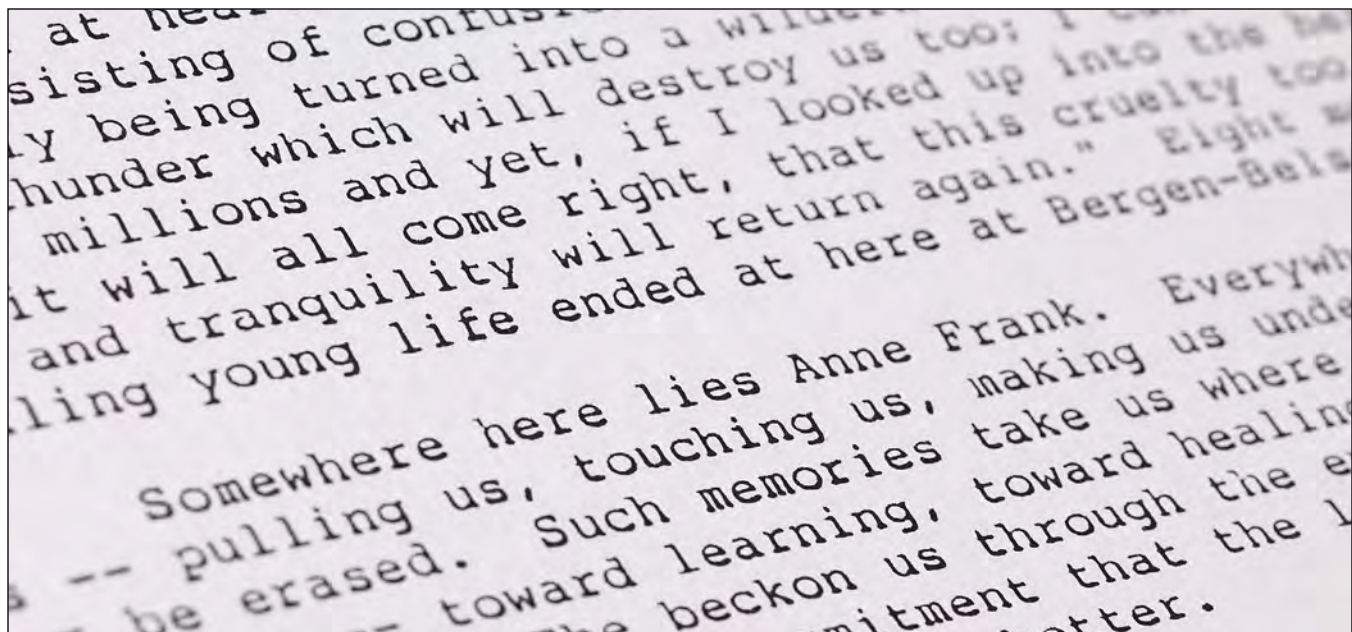 at hear
sisting of confusi
ly being turned into a wildern
hunder which will destroy us too; I can
millions and yet, if I looked up into the hea
it will all come right, that this cruelty too
and tranquility will return again." Eight m
ling young life ended at here at Bergen-Bels
Somewhere here lies Anne Frank. Everywh
s -- pulling us, touching us, making us unde
be erased. Such memories take us where
-- toward learning, toward healing
he beckon us through the e
mitment that the l
etter.